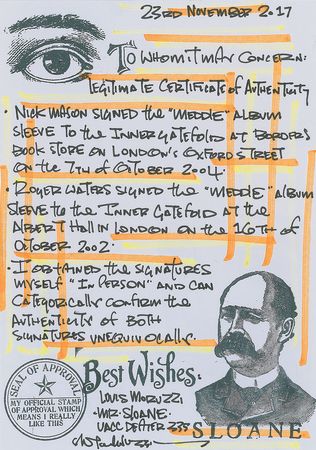 23RD NOVEMBER 2017
TO WHOM IT MAY CONCERN:
LEGITIMATE CERTIFICATE OF AUTHENTICITY
• NICK MASON SIGNED THE "MEDDLE" ALBUM
SLEEVE TO THE INNER GATEFOLD AT BORDERS
BOOK STORE ON LONDON'S OXFORD STREET
ON THE 7TH OF OCTOBER 2004.
• ROGER WATERS SIGNED THE "MEDDLE" ALBUM
SLEEVE TO THE INNER GATEFOLD AT THE
ALBERT HALL IN LONDON ON THE 16TH OF
OCTOBER 2002.
• I OBTAINED THE SIGNATURES
MYSELF "IN PERSON" AND CAN
CATEGORICALLY CONFIRM THE
AUTHENTICITY OF BOTH
SIGNATURES UNEQUIVOCALLY.
Best Wishes:
LOUIS MORUZZI
·MR·SLOANE·
UACC DEALER 255
SEAL OF APPROVAL
MY OFFICIAL STAMP
OF APPROVAL WHICH
MEANS I REALLY
LIKE THIS
SLOANE